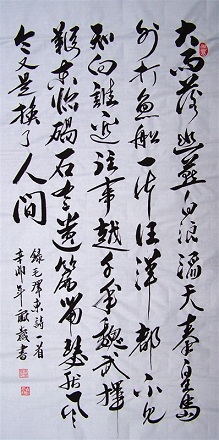 大雨落幽燕白浪滔天秦皇島
外打魚船一片汪洋都不見
知向誰邊往事越千年魏武揮
鞭東臨碣石有遺篇蕭瑟秋風
今又是換了人間
錄毛澤東詩一首
辛卯年書